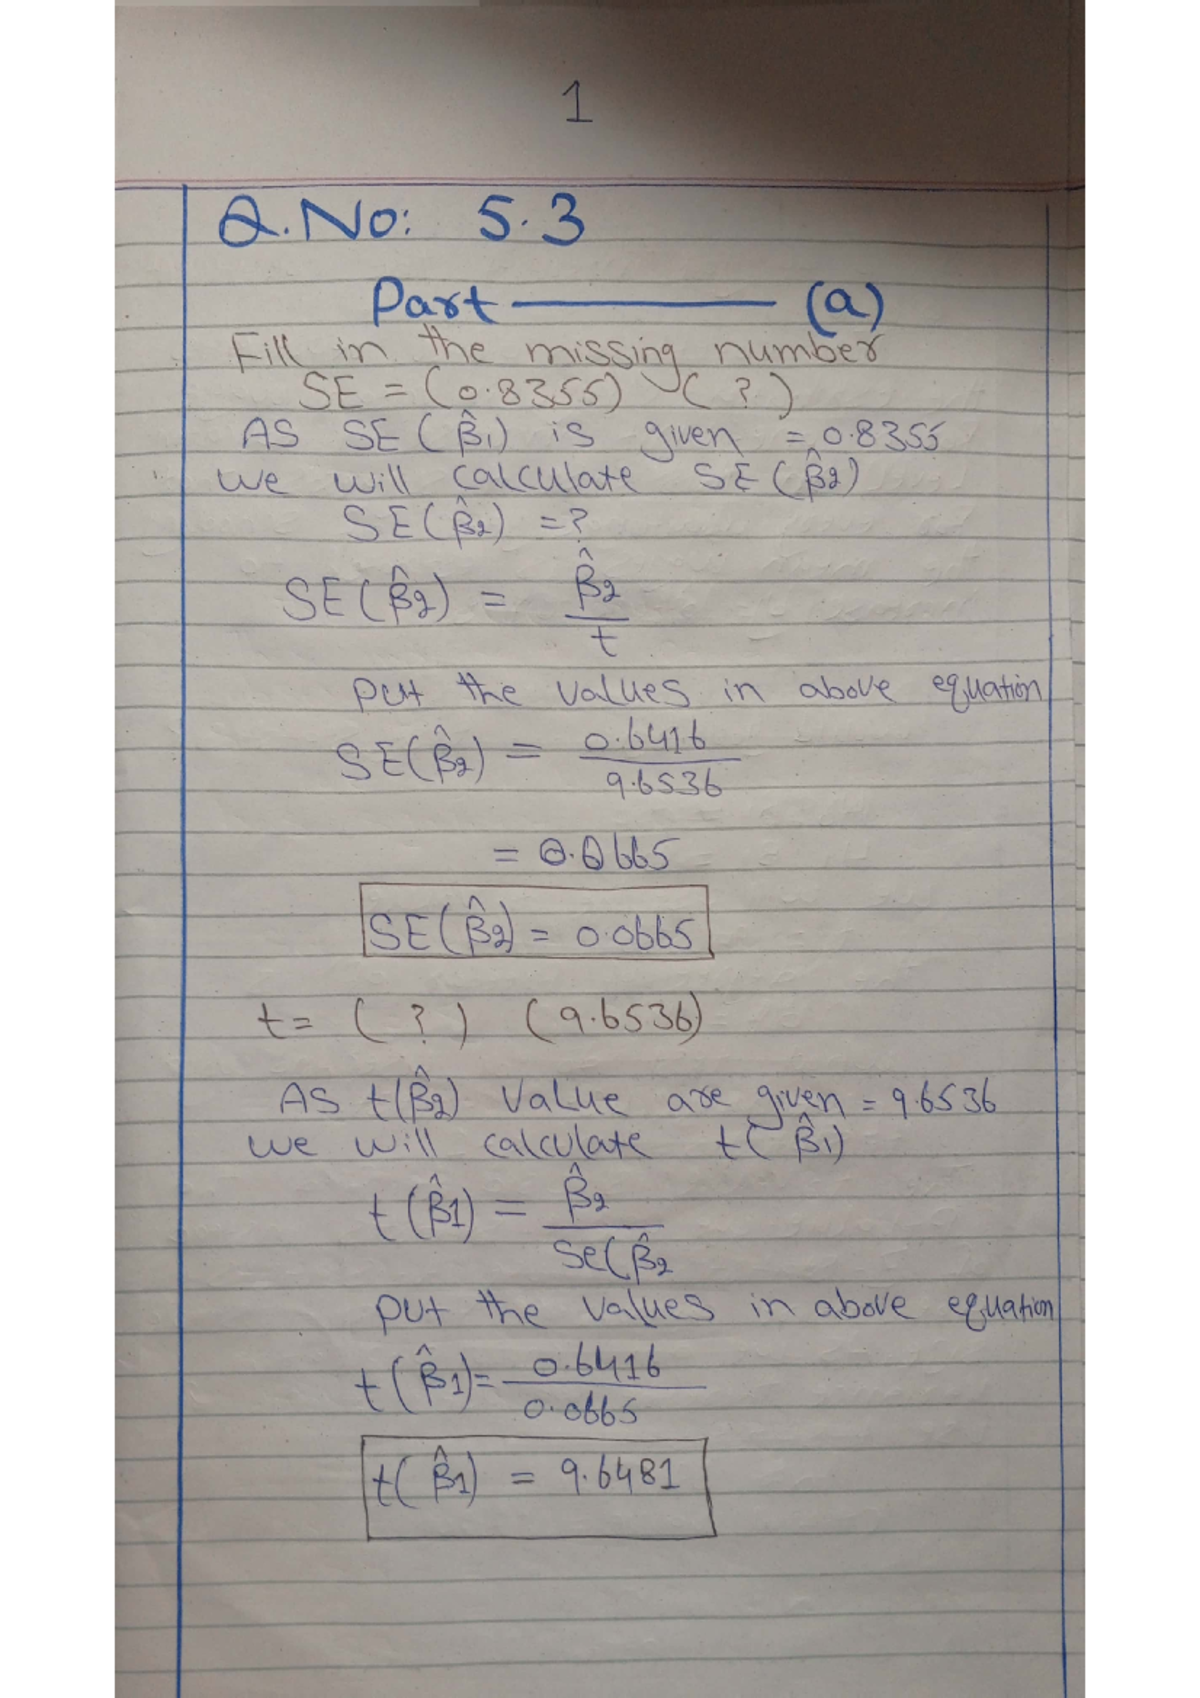 1
Q.No: 5.3
Part ——— (a)
Fill in the missing number
SE = (0.8355) ( ? )
AS SE (β̂1) is given = 0.8355
we will calculate SE (β̂2)
SE(β̂2) = ?
SE(β̂2) = β̂2 / t
put the values in above equation
SE(β̂2) = 0.6416 / 9.6536
= 0.0665
SE(β̂2) = 0.0665
t = ( ? ) (9.6536)
AS t(β̂2) value are given = 9.6536
we will calculate t( β̂1)
t (β̂1) = β̂2 / Se(β̂2
put the values in above equation
t (β̂1) = 0.6416 / 0.0665
t( β̂1) = 9.6481